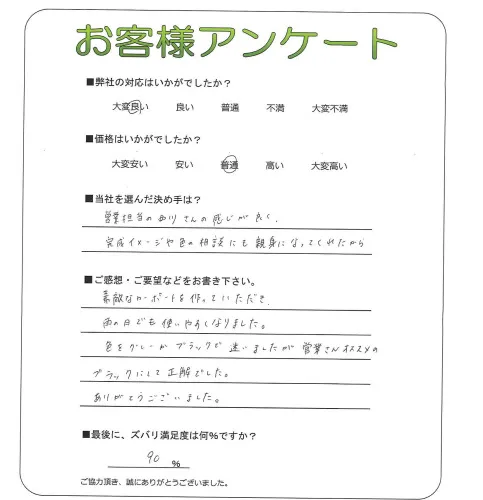 お客様アンケート
■弊社の対応はいかがでしたか？
大変良い 良い 普通 不満 大変不満
■価格はいかがでしたか？
大変安い 安い 普通 高い 大変高い
■当社を選んだ決め手は？
営業担当の西川さんの感じが良く、
完成イメージや色の相談にも親身になってくれたから
■ご感想・ご要望などをお書き下さい。
素敵なカーポートを作っていただき、
雨の日でも使いやすくなりました。
色をグレーかブラックで迷いましたが営業さんオススメの
ブラックにして正解でした。
ありがとうございました。
■最後に、ズバリ満足度は何％ですか？
90 ％
ご協力頂き、誠にありがとうございました。